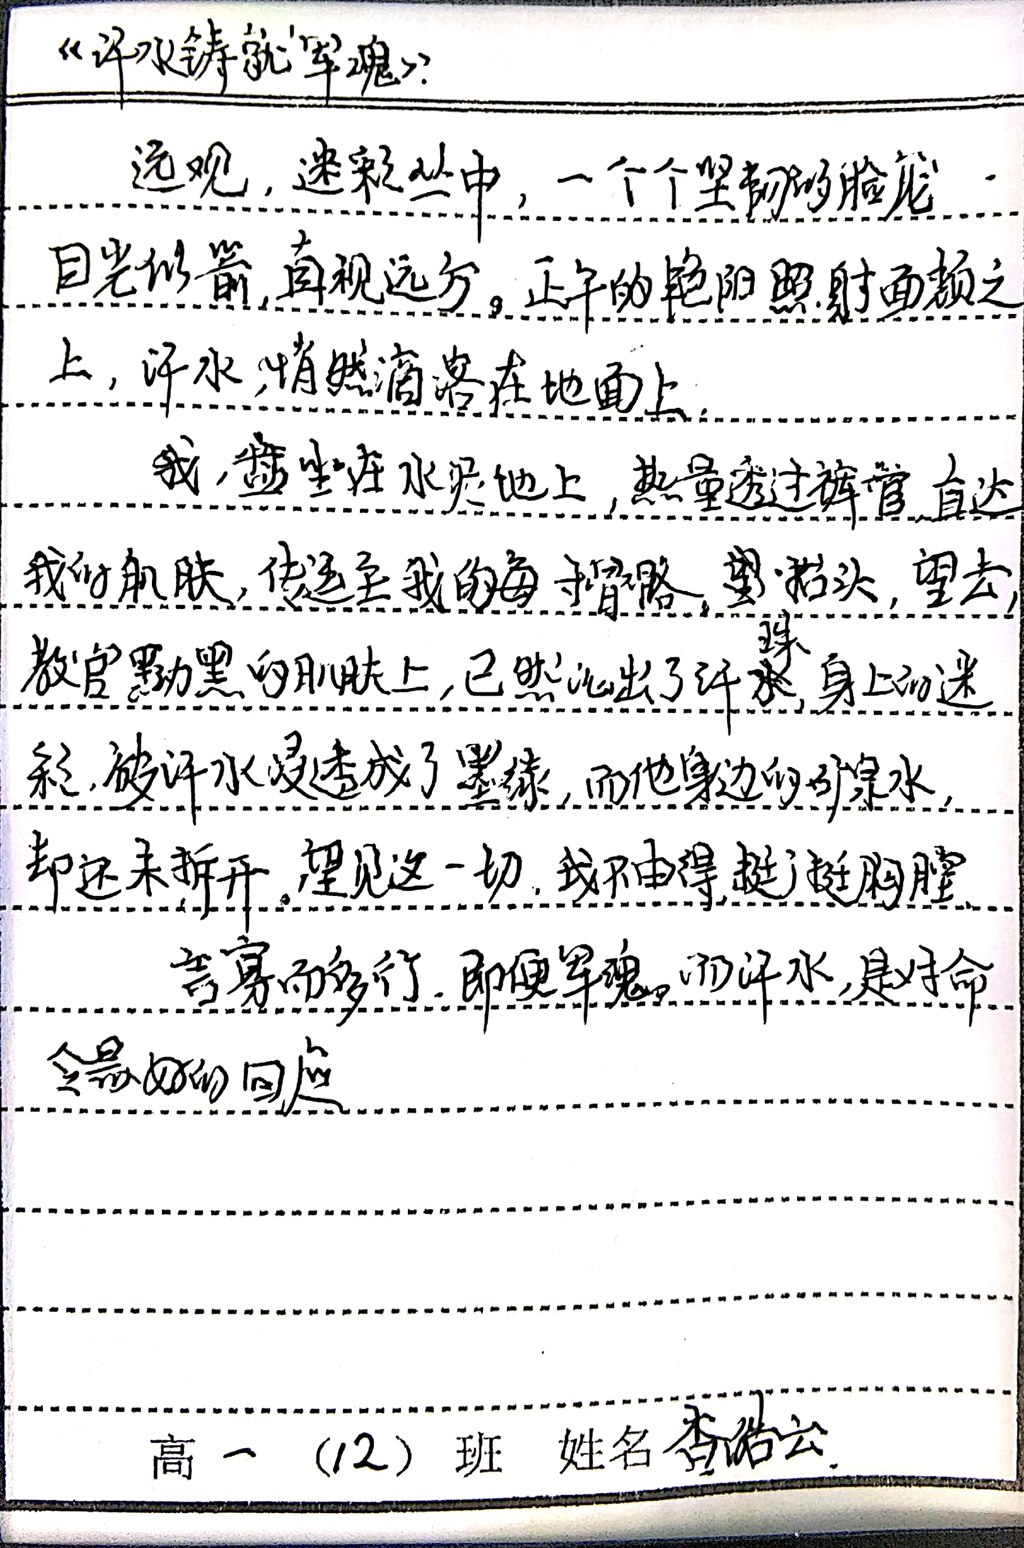 《汗水铸就军魂》
远观，迷彩丛中，一个个坚韧的脸庞
目光似箭，直视远方。正午的艳阳照射面颊之
上，汗水，悄然滴落在地面上.
我，盘坐在水泥地上，热量透过裤管直达
我的肌肤，传递至我的每寸，抬头，望去，
教官黝黑的肌肤上，已然沁出了汗珠，身上的迷
彩，被汗水浸透成了墨绿，而他身边的矿泉水，
却还未拆开。望见这一切，我不由得挺了挺胸膛.
言寡而多行.即便军魂。而汗水，是对命
令最好的回应
高一（12）班 姓名 浩云